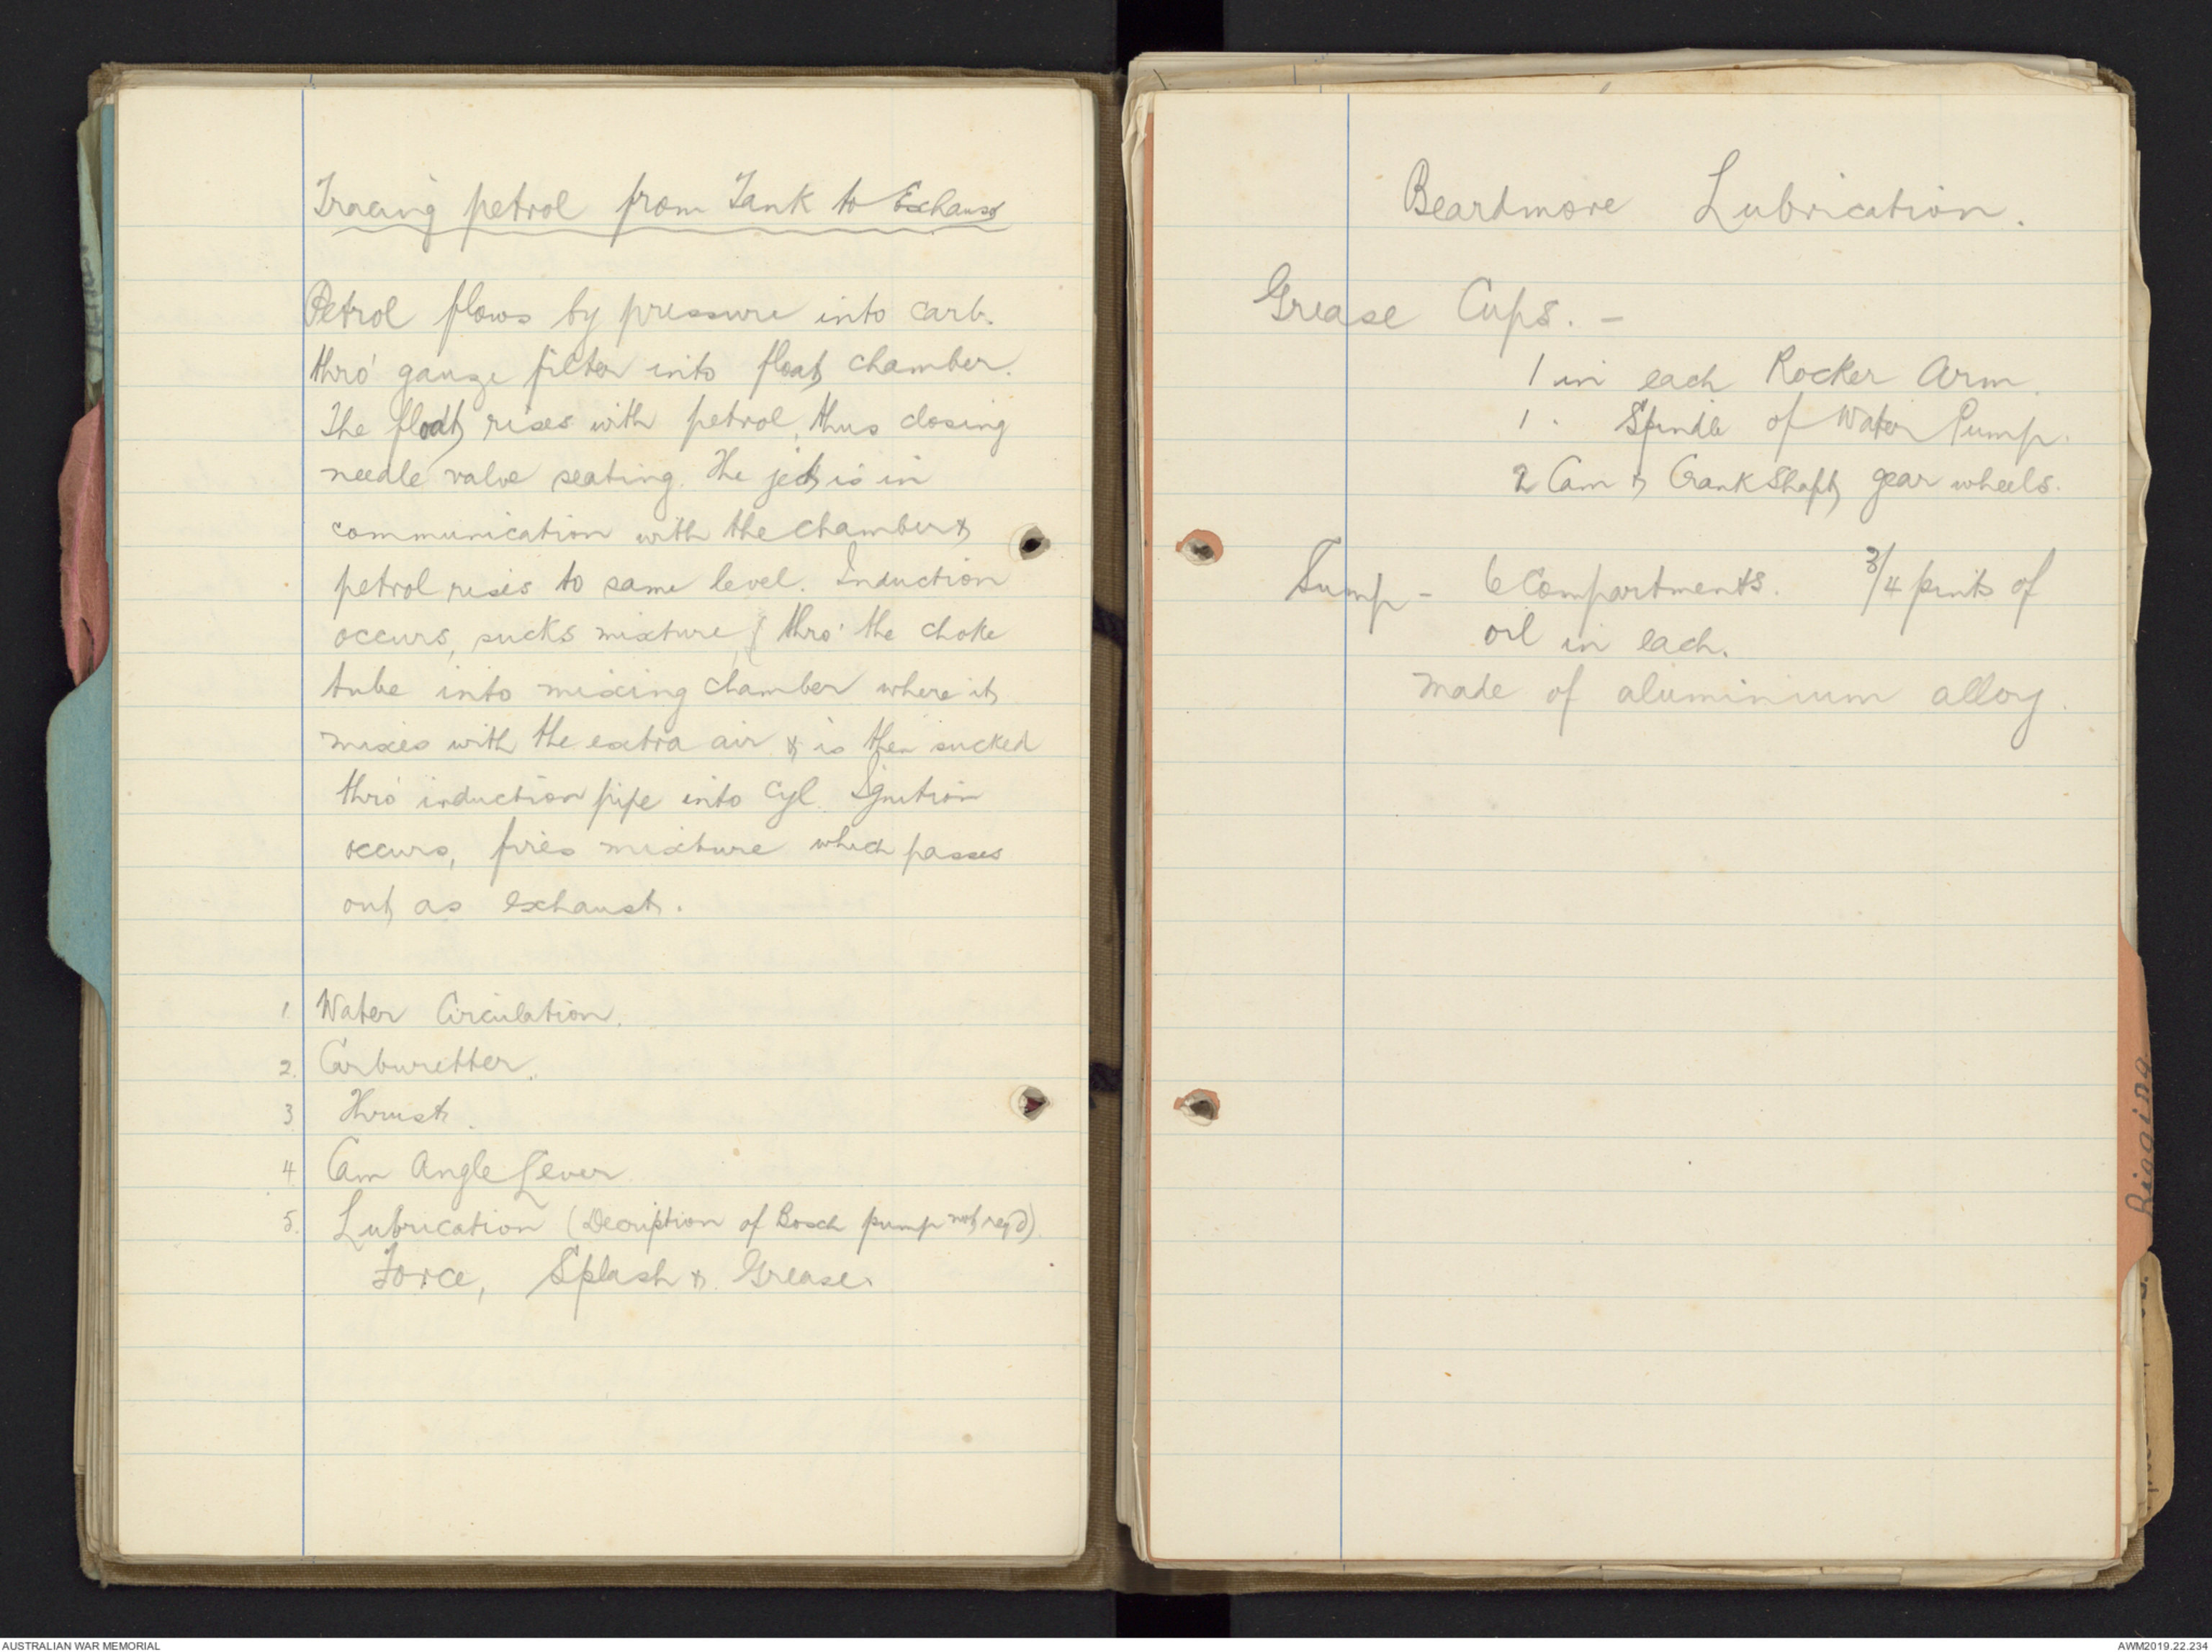 Tracing petrol from Tank to Exhaust
Petrol flows by pressure into carb.
thro' gauze filter into float chamber.
The float rises with petrol, thus closing
needle valve seating. The jet is in
communication with the chamber &
petrol rises to same level. Induction
occurs, sucks mixture, thro' the choke
tube into mixing chamber where it
mixes with the extra air & is then sucked
thro' induction pipe into Cyl. Ignition
occurs, fires mixture which passes
out as exhaust.
1 Water Circulation.
2. Carburetter.
3 Thrust.
4 Cam Angle Lever
5. Lubrication (Decription of Bosch pump not reqd).
Force, Splash & Grease.
Beardmore Lubrication.
Grease Cups. -
1 in each Rocker Arm.
1 . Spindle of Water Pump.
2 Cam & Crank Shaft gear wheels.
Sump - 6 Compartments. 3/4 pints of
oil in each.
made of aluminium alloy.
Rigging
AUSTRALIAN WAR MEMORIAL
AWM2019.22.234